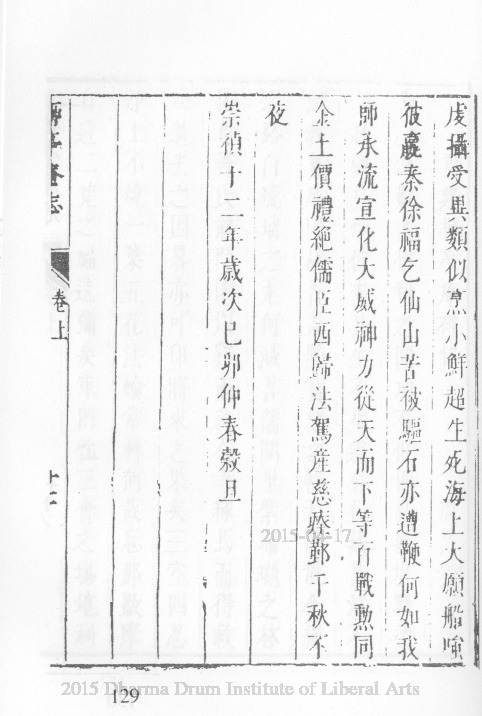 虔攝受異類似烹小鮮超生死海上大願船嗤
彼嬴秦徐福乞仙山苦被驅石亦遭鞭何如我
師承流宣化大威神力從天而下等百戰勲同
金土價禮絶儒臣西歸法駕産慈瘞鄞千秋不
夜
崇禎十二年歲次巳卯仲春穀旦
志
卷上
十二
2015-04-17
129
2015 Dharma Drum Institute of Liberal Arts